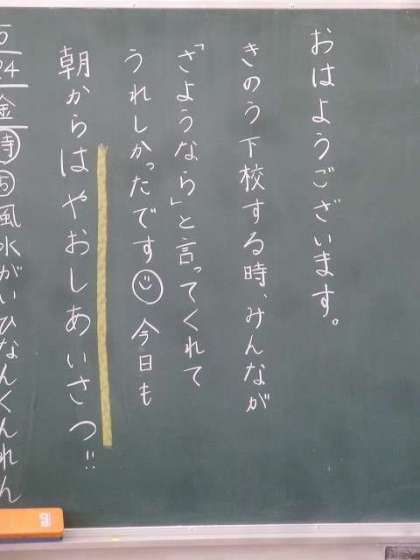 おはようございます。
きのう下校する時、みんなが
「さようなら」と言ってくれて
うれしかったです☺ 今日も
朝からはやおしあいさつ!!
24 金 時 ⑤ 風水がいひなんくんれん